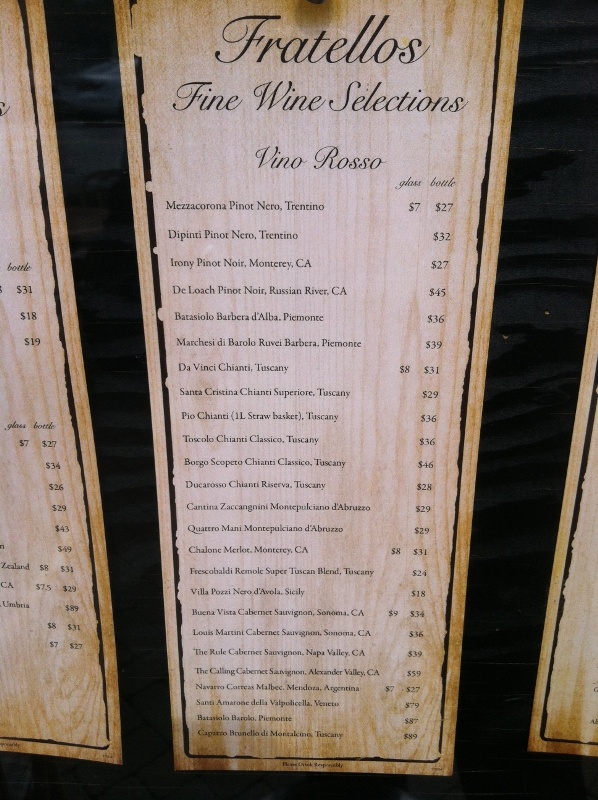 Fratellos
Fine Wine Selections
Vino Rosso
glass bottle
Mezzacorona Pinot Nero, Trentino $7 $27
Dipinti Pinot Nero, Trentino $32
Irony Pinot Noir, Monterey, CA $27
De Loach Pinot Noir, Russian River, CA $45
Batasiolo Barbera d'Alba, Piemonte $36
Marchesi di Barolo Ruvei Barbera, Piemonte $39
Da Vinci Chianti, Tuscany $8 $31
Santa Cristina Chianti Superiore, Tuscany $29
Pio Chianti (1L Straw basket), Tuscany $36
Toscolo Chianti Classico, Tuscany $36
Borgo Scopeto Chianti Classico, Tuscany $46
Ducarosso Chianti Riserva, Tuscany $28
Cantina Zaccangnini Montepulciano d'Abruzzo $29
Quattro Mani Montepulciano d'Abruzzo $29
Chalone Merlot, Monterey, CA $8 $31
Frescobaldi Remole Super Tuscan Blend, Tuscany $24
Villa Pozzi Nero d'Avola, Sicily $18
Buena Vista Cabernet Sauvignon, Sonoma, CA $9 $34
Louis Martini Cabernet Sauvignon, Sonoma, CA $36
The Rule Cabernet Sauvignon, Napa Valley, CA $39
The Calling Cabernet Sauvignon, Alexander Valley, CA $59
Navarro Correas Malbec, Mendoza, Argentina $7 $27
Santi Amarone della Valpolicella, Veneto $79
Batasiolo Barolo, Piemonte $87
Caparzo Brunello di Montalcino, Tuscany $89
Please Drink Responsibly
bottle
$31
$18
$19
glass bottle
$7 $27
$34
$26
$29
$43
$49
Zealand $8 $31
CA $7.5 $29
Umbria $89
$8 $31
$7 $27